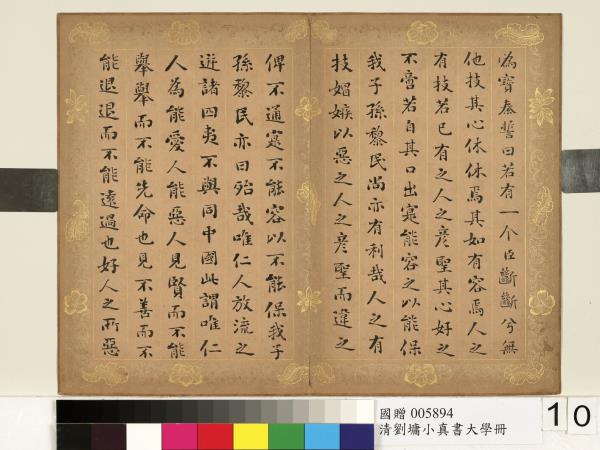 為寶秦誓曰若有一个臣斷斷兮無
他技其心休休焉其如有容焉人之
有技若己有之人之彥聖其心好之
不啻若自其口出寔能容之以能保
我子孫黎民尚亦有利哉人之有
技媢嫉以惡之人之彥聖而違之
俾不通寔不能容以不能保我子
孫黎民亦曰殆哉唯仁人放流之
迸諸四夷不與同中國此謂唯仁
人為能愛人能惡人見賢而不能
舉舉而不能先命也見不善而不
能退退而不能遠過也好人之所惡
國贈 005894
清劉墉小真書大學冊
10